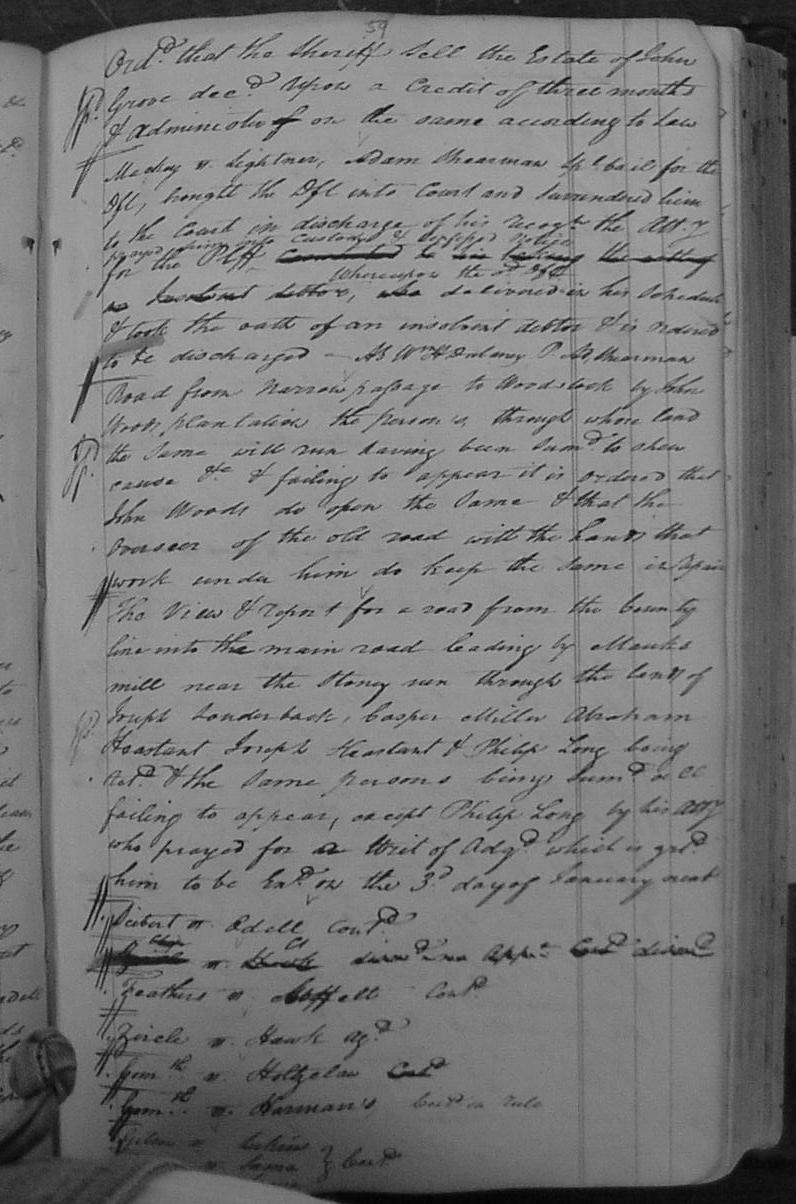 59
Ord.d that the Sheriff Sell the Estate of John
Grove dec.d Upon a Credit of three months
& administer on the same according to Law
Mackey vs. Lightner, Adam Shearman Spl. bail for the
Dft, brought the Dft into Court and Surrendered him
to the Court in discharge of his recog.ce the Att.y
prayed him into Custody &
for the Plff Committed to
Whereupon the sd Dft
Insolvent debtor, who delivered in his Schedule
& took the oath of an insolvent debtor & is ordered
to be discharged – Ab Wm H Dulaney P. Ab Shearman
Road from Narrow passage to Woodstock by John
Woods plantation the person's through whose land
the same will run having been Sum.d to shew
cause &c & failing to appear it is ordered that
John Woods do open the Same & that the
Overseer of the old road with the hands that
work under him do keep the same in repair
The View & report for a road from the County
line into the main road leading by Mauks
mill near the Stoney run through the lands of
Joseph Louderback, Casper Miller Abraham
Heastant Joseph Heastant & Philip Long being
ret.d & the Same persons being Sum.d &
failing to appear, except Philip Long by his Atty
who prayed for a Writ of Adq.d which is grt.d
him to be Ex.d on the 3.d day of January next
Seibert vs. Odell Cont.d
vs. Hawk
Feathers vs. Moffett Cont.d
Zircle vs. Hawk Ag.d
Com.th vs. Holtzclaw Cont.d
Com.th vs. Harman's Cont.d on rule
vs.
vs. } Cont.d